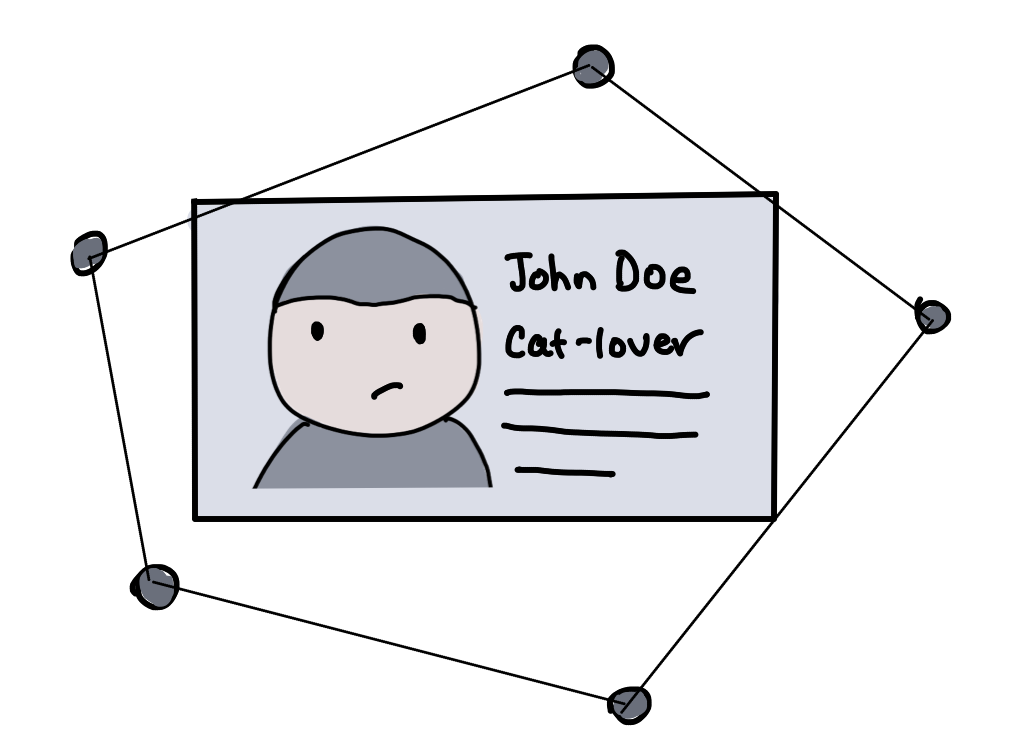 John Doe
Cat-lover